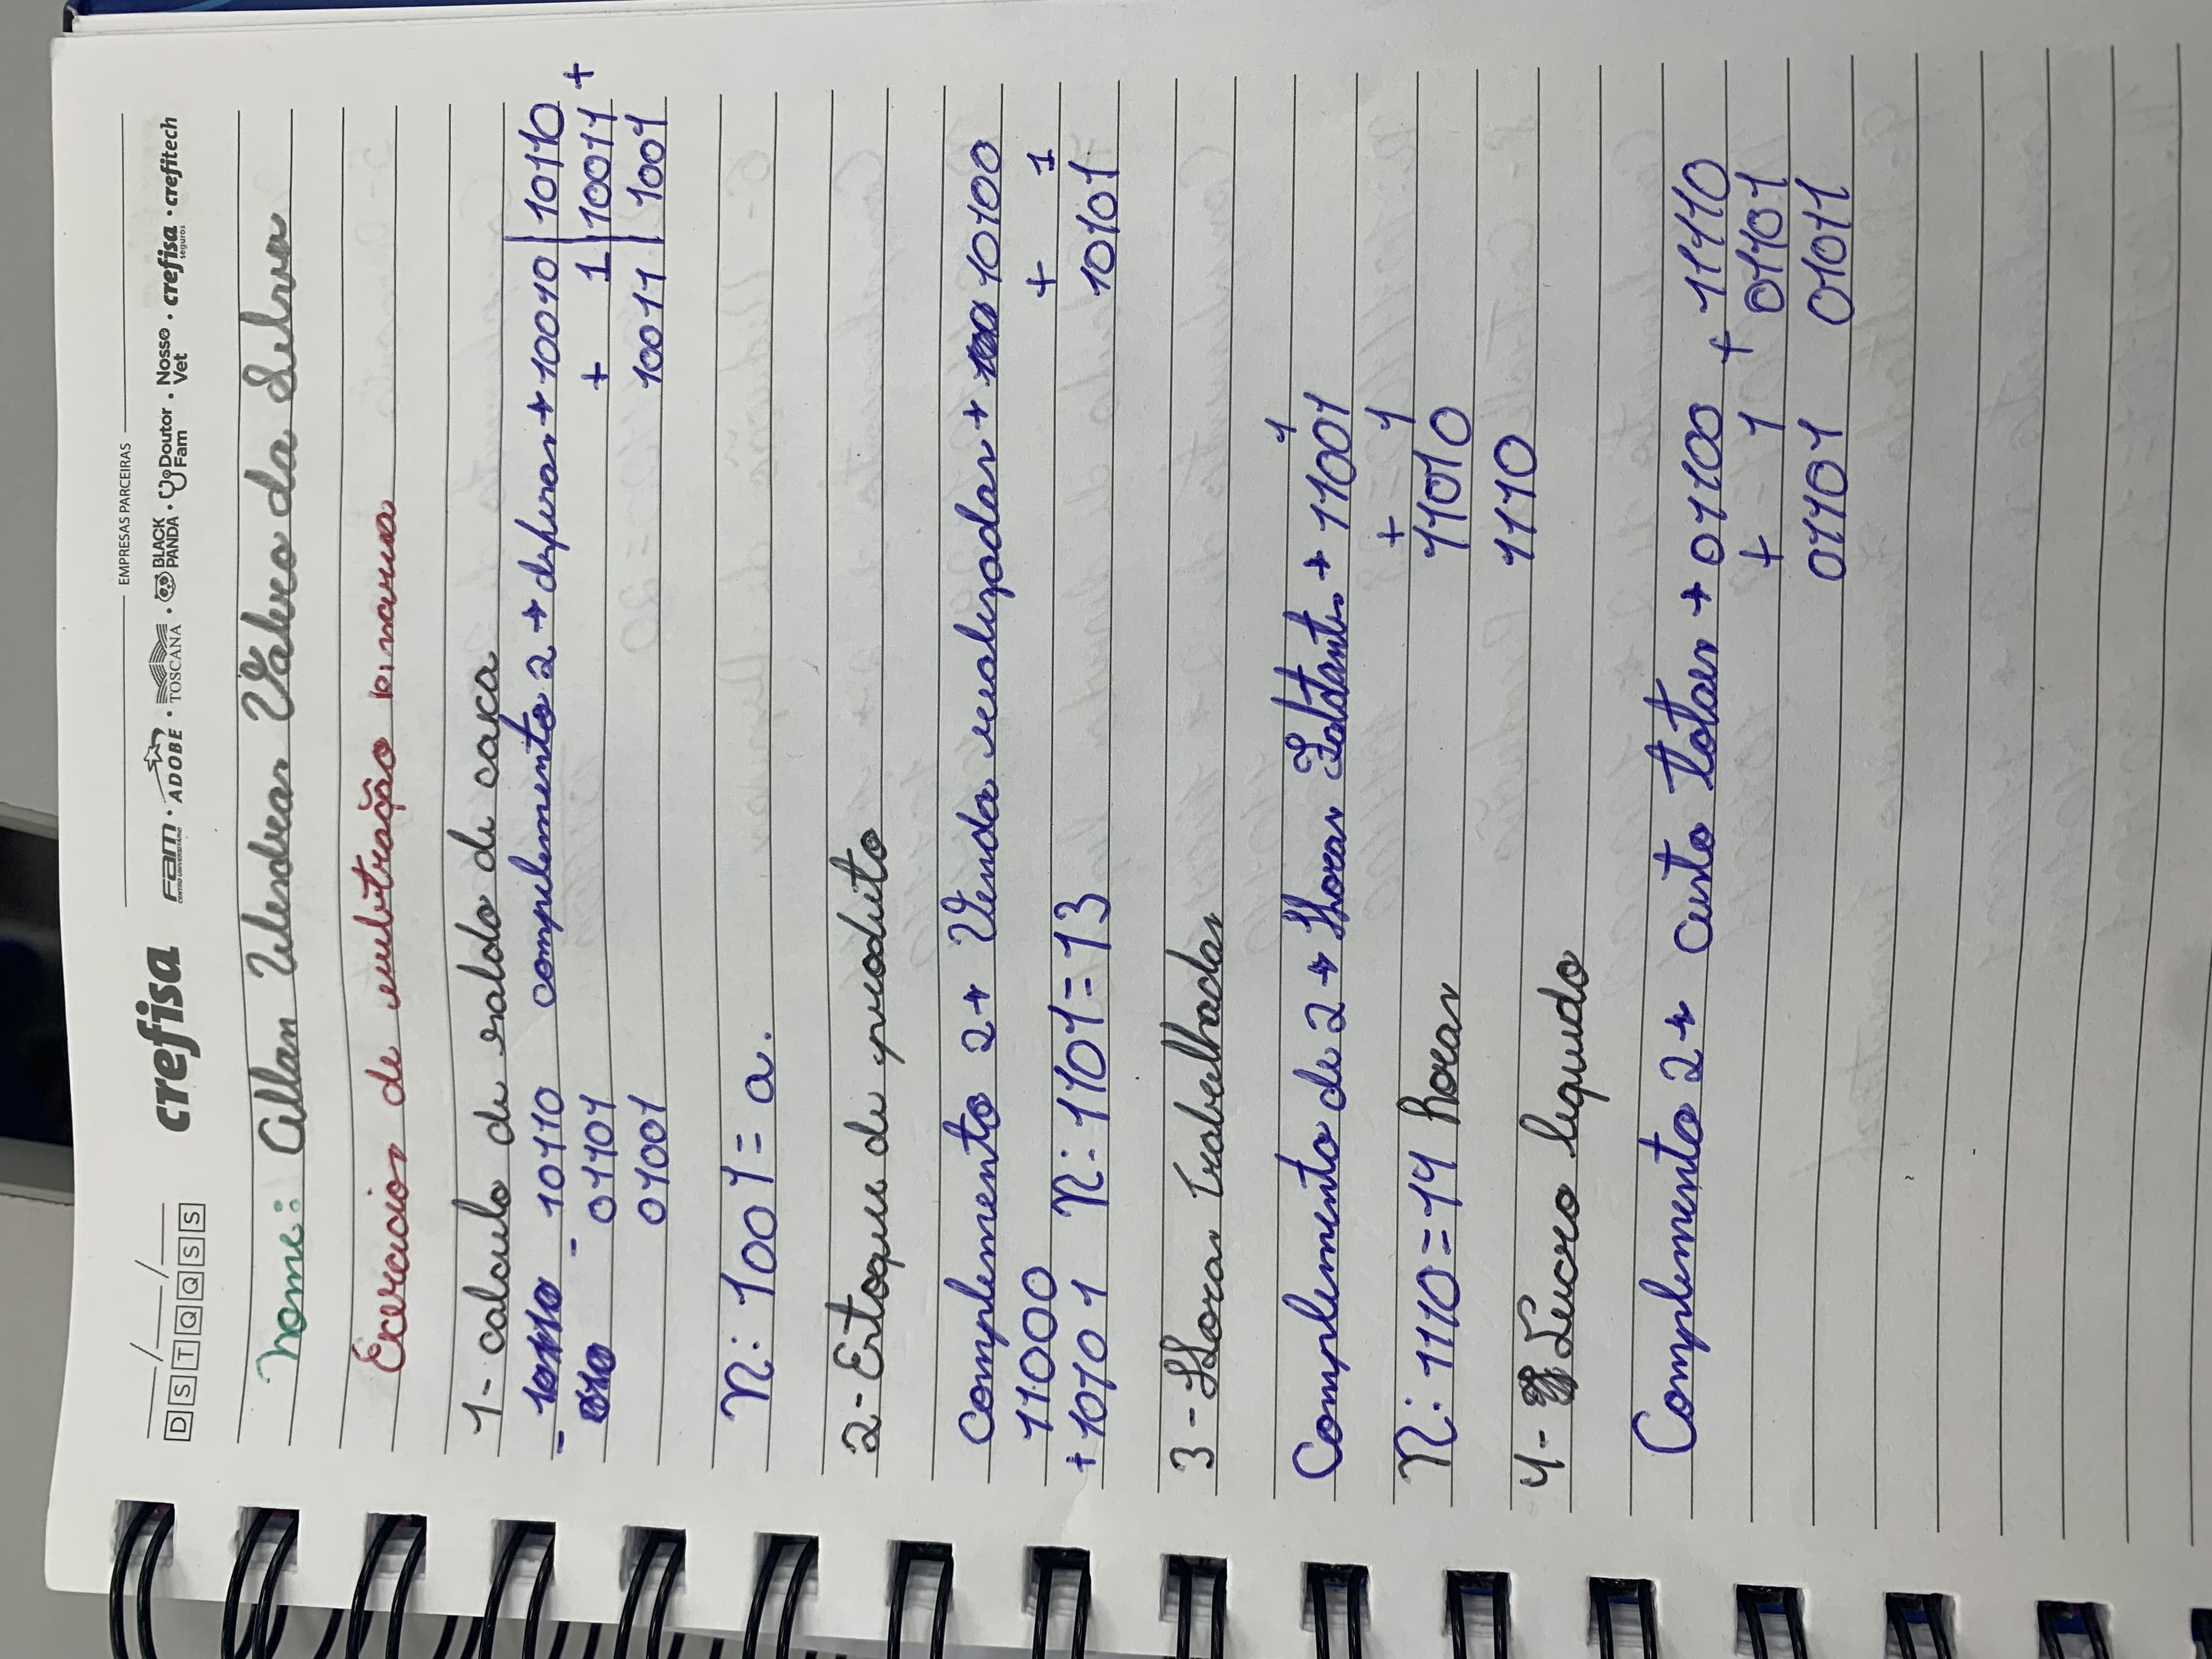 EMPRESAS PARCEIRAS
__/__/__
D S T Q Q S S
crefisa
Fam CENTRO UNIVERSITÁRIO · ADOBE · TOSCANA · BLACK PANDA · Doutor Fam · Nosso Vet · crefisa seguros · crefitech
Nome: Allan da Silva
Exercacios de subtração binaria
1- calculo de saldo de caxa
- 10110 complemento 2 → despesas → 10010 | 10110
01101 + 1 | 10011 +
01001 10011 | 1001
R: 1001 = a.
2- Estoque de produto
Complemento 2 → Venda realizadas → 10100
11000 + 1
+ 10101 R: 1101 = 13 10101
3 - Horas Trabalhadas
1
Complemento de 2 → Horas Faltantes → 11001
+ 1
R: 1110 = 14 horas 11010
1110
4- Lucro liquido
Complemento 2 → custo totais → 01100 + 11110
+ 1 01101
01101 01011